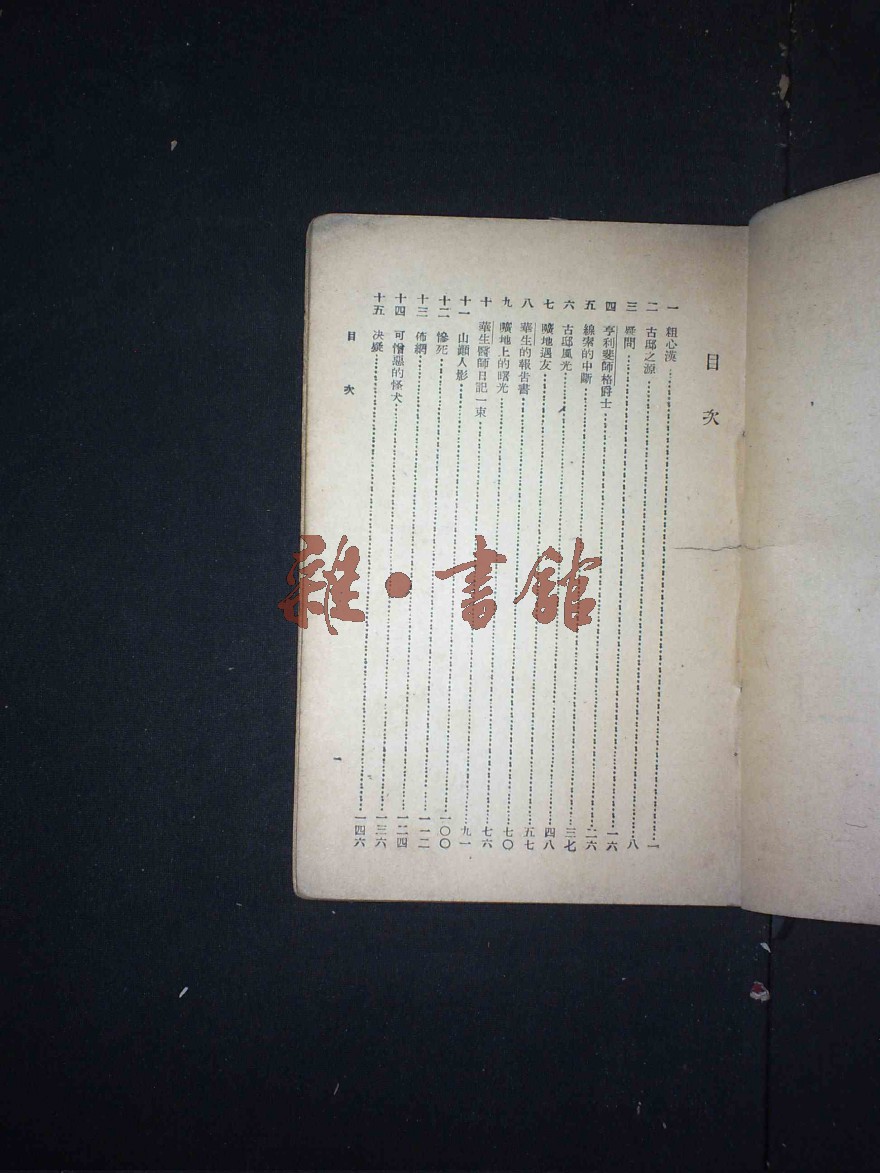 目次
一 粗心漢 一
二 古邸之源 八
三 疑問 一六
四 亨利斐師格爵士 二六
五 線索的中斷 三七
六 古邸風光 四八
七 曠地遇友 五七
八 華生的報告書 七〇
九 曠地上的曙光 七六
十 華生醫師日記一束 九一
十一 山巔人影 一〇〇
十二 慘死 一一二
十三 佈網 一二四
十四 可憎惡的怪犬 一三六
十五 决疑 一四六
目次
一
雜·書館